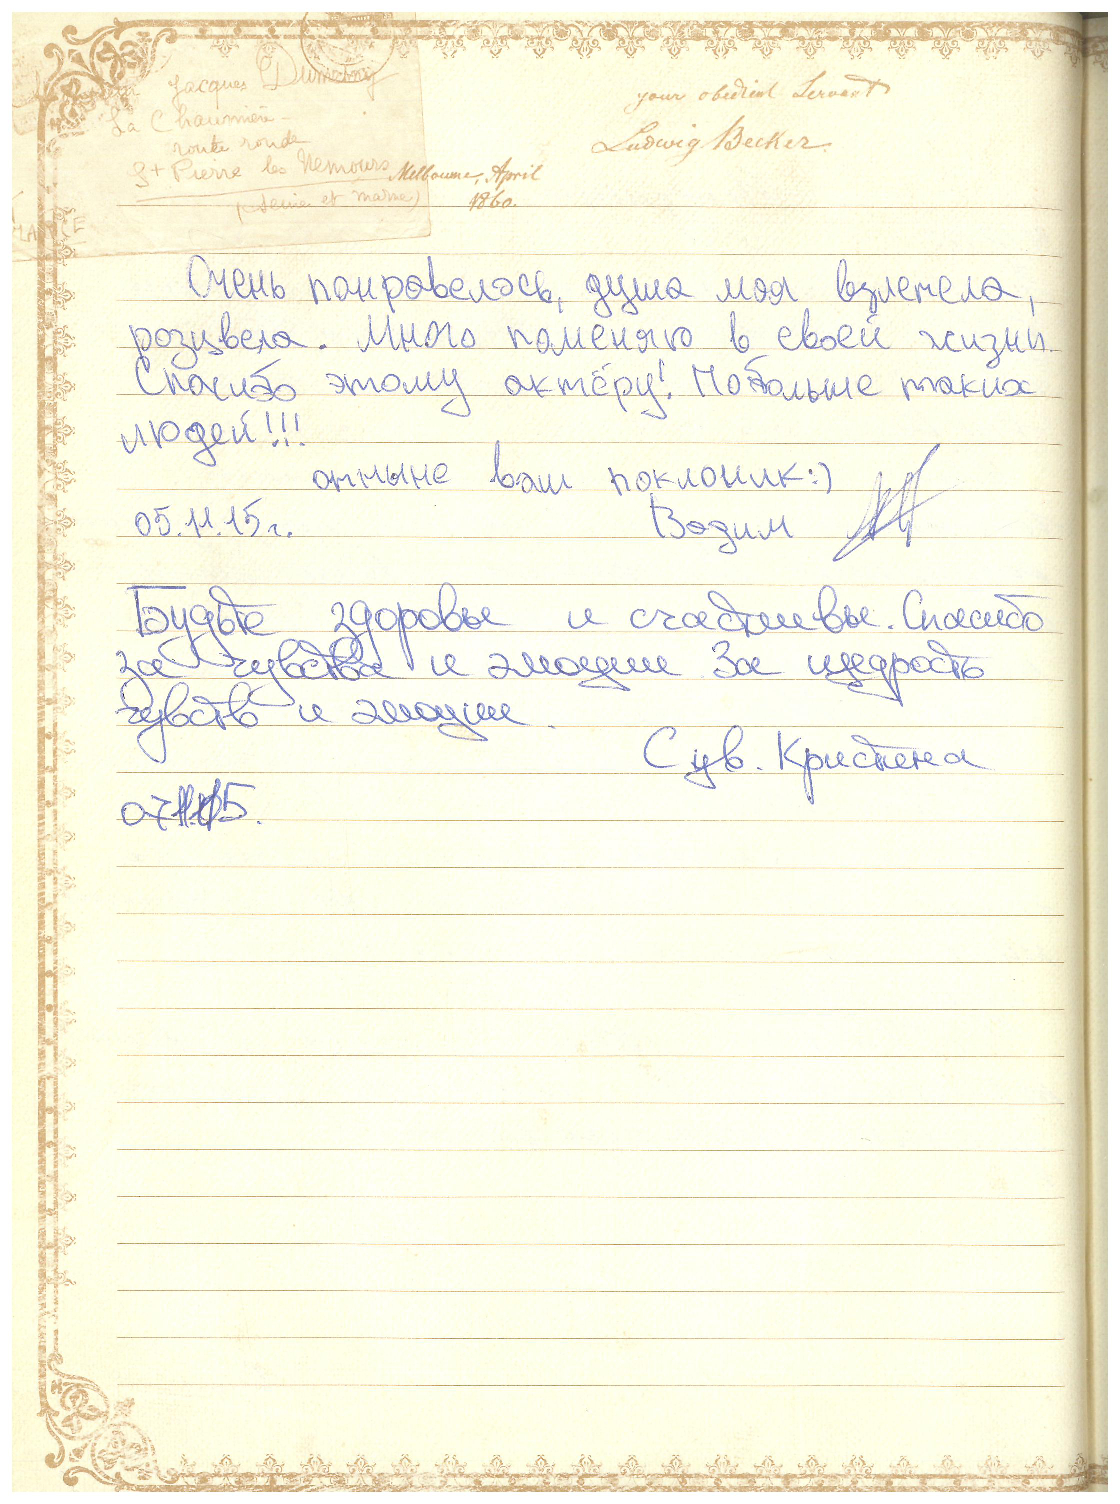 Jacques Dumesny
La Chaumière
route ronde
St Pierre les Nemours
(Seine et marne)
your obedient Servant
Ludwig Becker.
Melbourne, April
1860.
Очень понравелось, душа моя взлетела,
розцвела. Много поменяю в своей жизни.
Спасибо этому актёру! Побольше таких
людей!!!
отныне ваш поклоник:)
05.11.15г. Вадим
Будьте здоровы и счастливы. Спасибо
за чувства и эмоции За щедрость
чувств и эмоции.
С ув. Кристина
07.11.15.